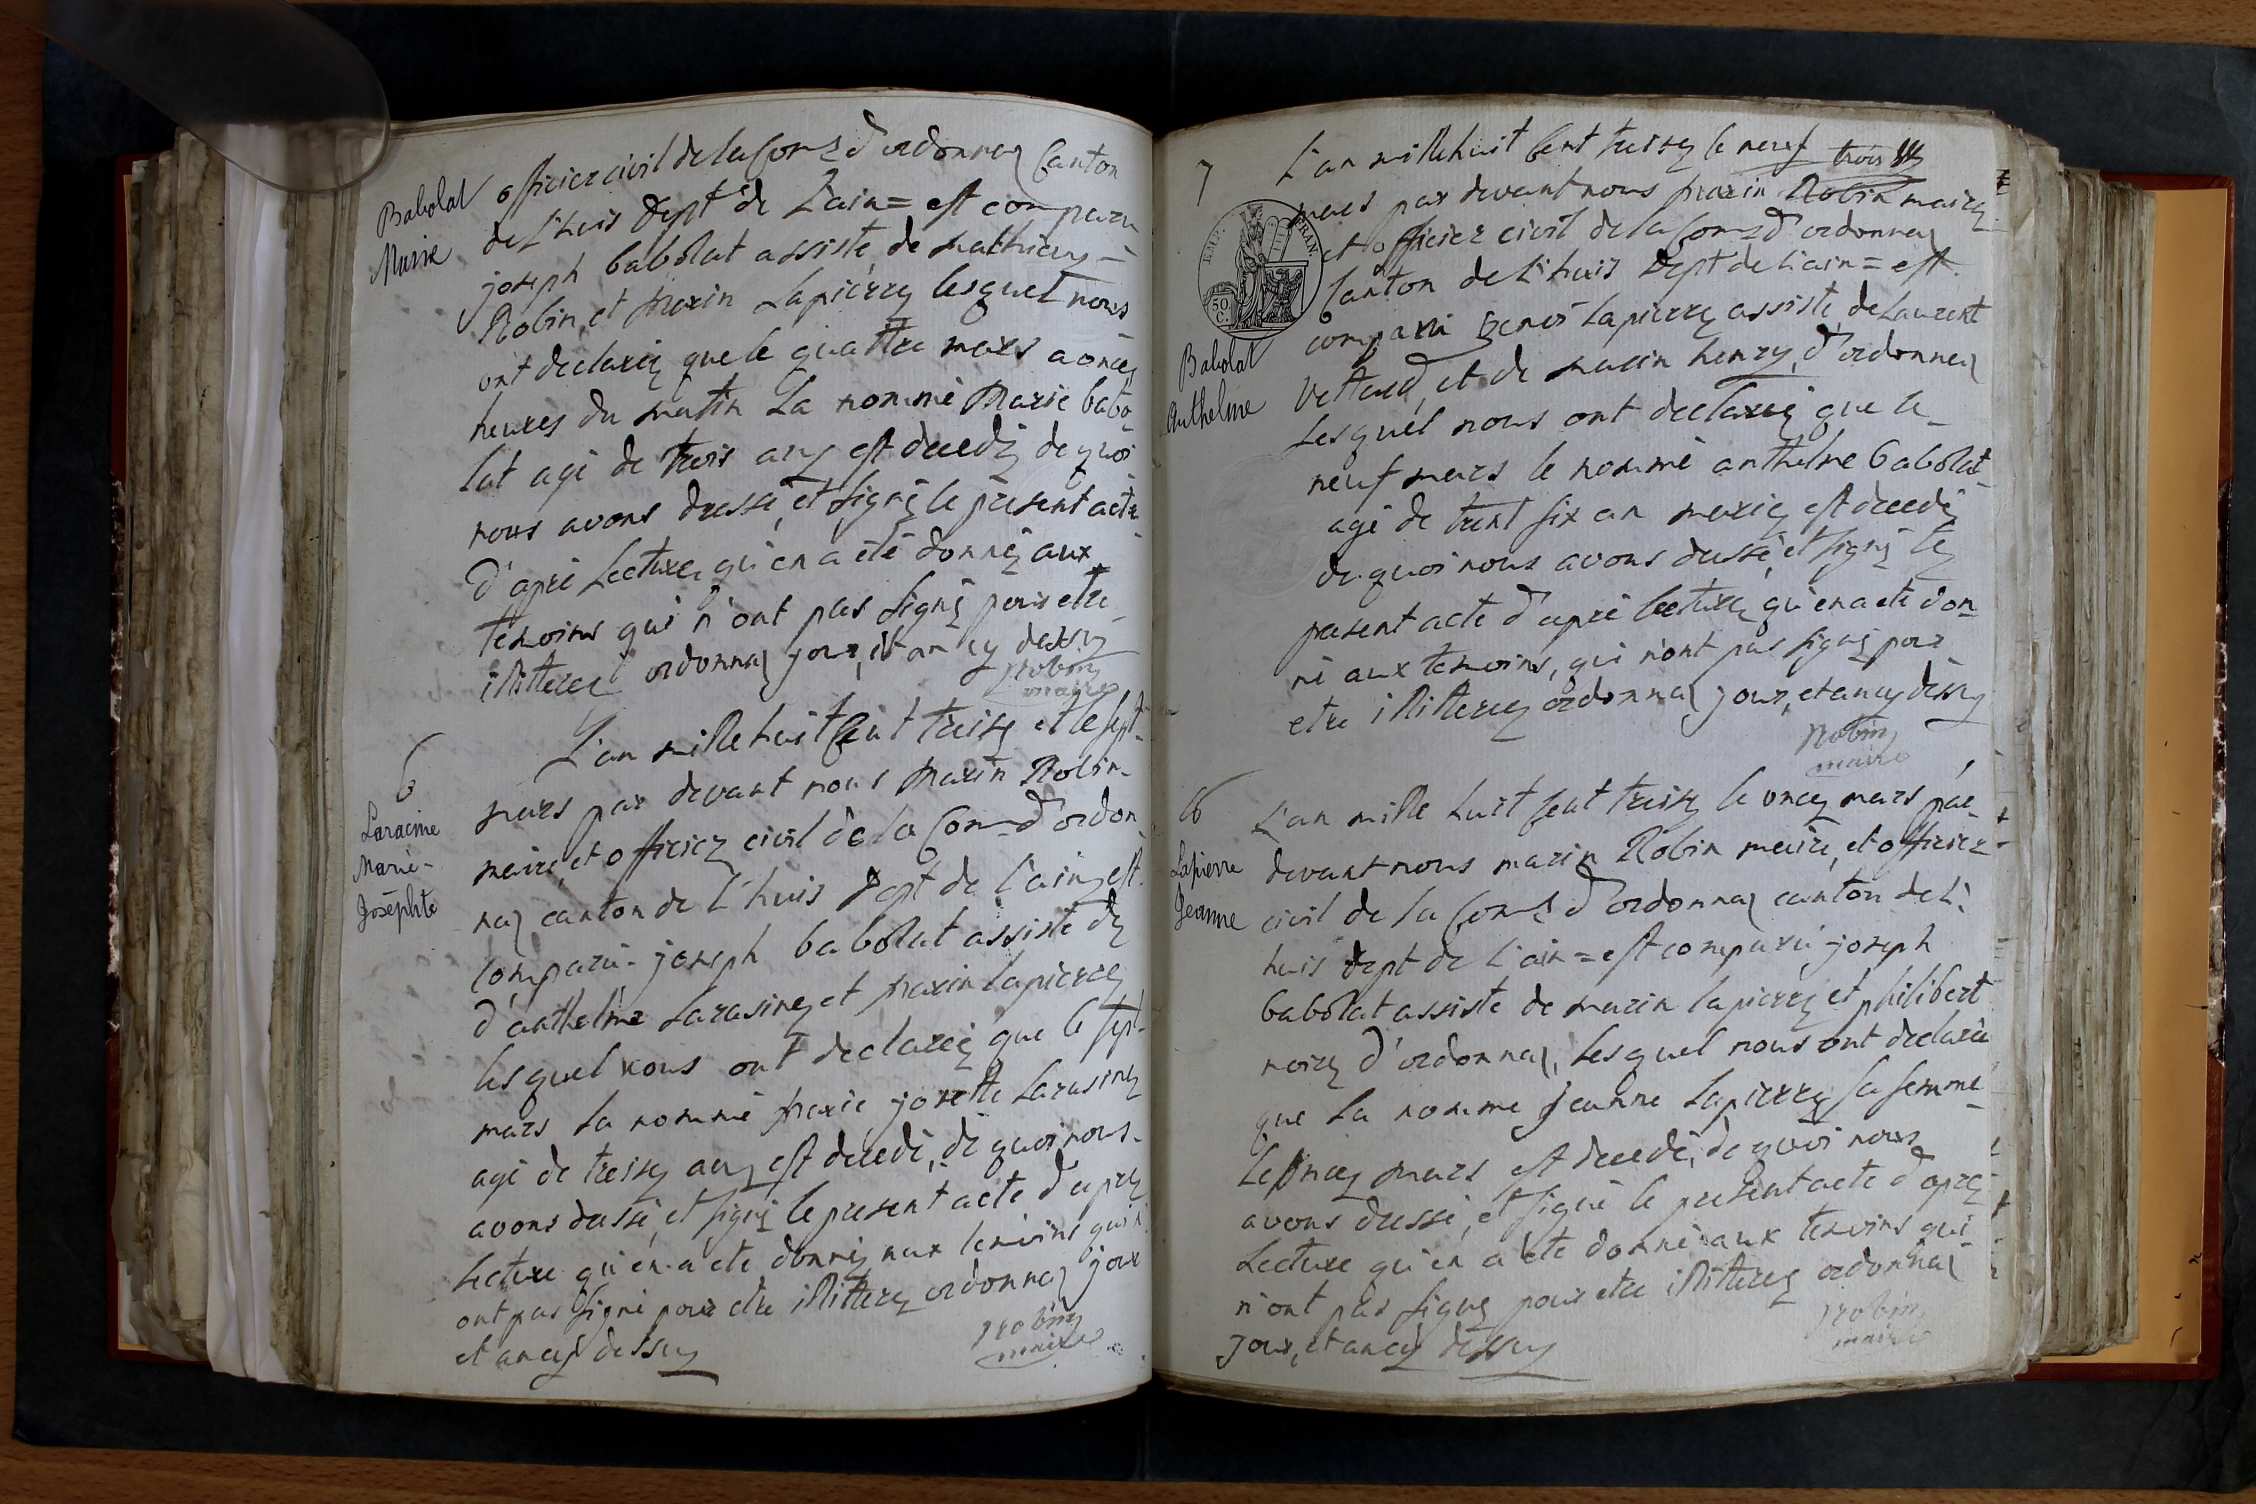 Babolat
Marie
officier civil de la Com.e d'ordonnaz Canton
de L'huis Dept de L'ain = est comparu
joseph babolat assisté de mathieuz =
Robin, et marin Lapierrez lesquel nous
ont declarez que le quattre mars a oncez
heures du matin La nommé Marie babo
lat agé de trois anz est decedéz de quoi
nous avons dressé, et signéz le present acte
d'apré Lecturez qu'en a été donnéz aux
temoins qui n'ont pas signéz pour etre
illitterez ordonnaz jour, et an cy dessuz
Robinz
maire
6
Laracine
Marie-
Josephte
L'an mille huit Cent treizez et le sept
mars par devant nous marin Robin
maire, et officiez civil de la Com.e d'ordon
naz canton de L'huis Dept de L'ain est
comparu = joseph babolat assisté dez
d'anthelme Larasinez et marin lapierrez
lesquel nous ont declaréz que le sept
mars la nommé marie josette Larasinez
agé de treisez anz est decedé, de quoi nous
avons dressé, et signéz le present acte d'aprez
Lecture qu'en a eté donnéz aux temoins qui n'
ont pas signé pour etre illitterez ordonnaz jour
et ancy dessuz
Robinz
maire
7
EMP. FRAN.
50 C.
Babolat
Anthelme
L'an mille huit Cent treisez le neuf trois
mars par devant nous marin Robin mairez
et officiez civil de la Com.e d'ordonnaz
Canton de L'huis Dept de L'ain = est
comparu Lapierrez assisté de Laurent
Vettard, et de marin henry, d'ordonnaz
Lesquel nous ont declaréz que le
neuf mars le nommé anthelme babolat
agé de trent six an mariez est decedé
de quoi nous avons dressé, et signéz lez
present acte d'apré lecturez qu'en a eté don
né aux temoins, qui n'ont pas signéz pour
etre illitterez ordonnaz jour, et ancy dessuz
Robinz
maire
Lapierre
Jeanne
L'an mille huit Cent treisez le oncez mars par
devant nous marin Robin maire, et officiez
civil de la Com.e d'ordonnaz canton de L'
huis Dept de L'ain = est comparu joseph
babolat assisté de marin lapierrez et philibert
noirez d'ordonnaz, Lesquel nous ont declaré
que la nommé jeanne Lapierrez sa femme
Le oncez mars est decedé, de quoi nous
avons dressé, et signé le present acte d'aprez
Lecture qu'en a eté donné aux temoins qui
n'ont pas signéz pour etre illitterez ordonnaz
jour, et ancy dessuz
Robinz
maire